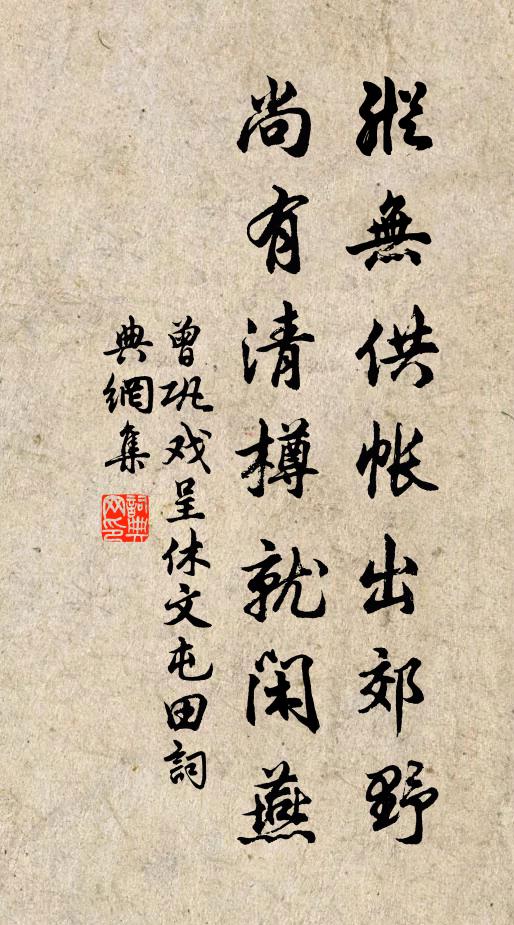 縱無供帐出郊野
尚有清樽就闲燕
曾巩戏呈休文屯田詞
典網集
詞典網印